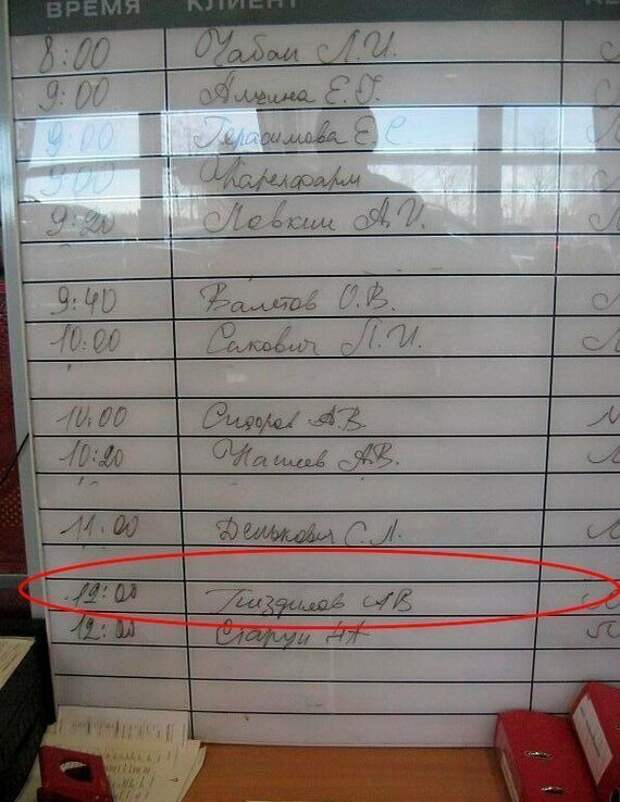 ВРЕМЯ КЛИЕНТ
8:00 Чабан Л.И.
9:00
9:00 Герасимова Е.С.
9:00 Карелфарм
9:20 Ловкин А.И.
9:40 Валетов О.В.
10:00 Сакович П.И.
10:00 Сидоров А.В.
10:20 А.В.
11:00 Денькович С.Л.
12:00 Пиздилов АВ
12:00